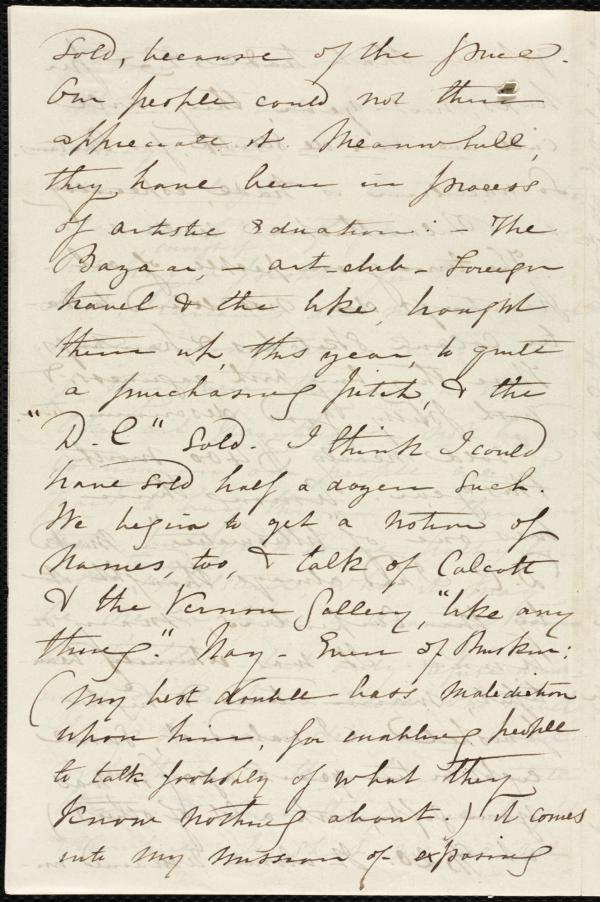 Sold, because of the price.
Our people could not then
appreciate it. Meanwhile,
they have been in process
of artistic Education: - The
Bazaar, - art-club - Foreign
travel & the like, brought
them up, this year, to quite
a purchasing pitch, & the
"D. C" sold. I think I could
have sold half a dozen such.
We begin to get a notion of
Names, too, & talk of Calcott
& the Vernon Gallery, "like any
thing." Nay - Even of Ruskin:
(My best double-bass Malediction
upon him, for enabling people
to talk foolishly of what they
know nothing about.) It comes
into my mission of exposing